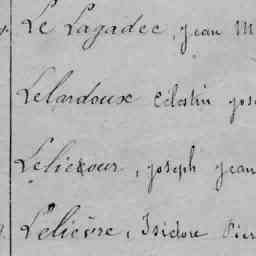 Le Lagadec, Jean M
Lelardoux Célestin jose
Leliezour, joseph jean
Lelièvre, Isidore Pier